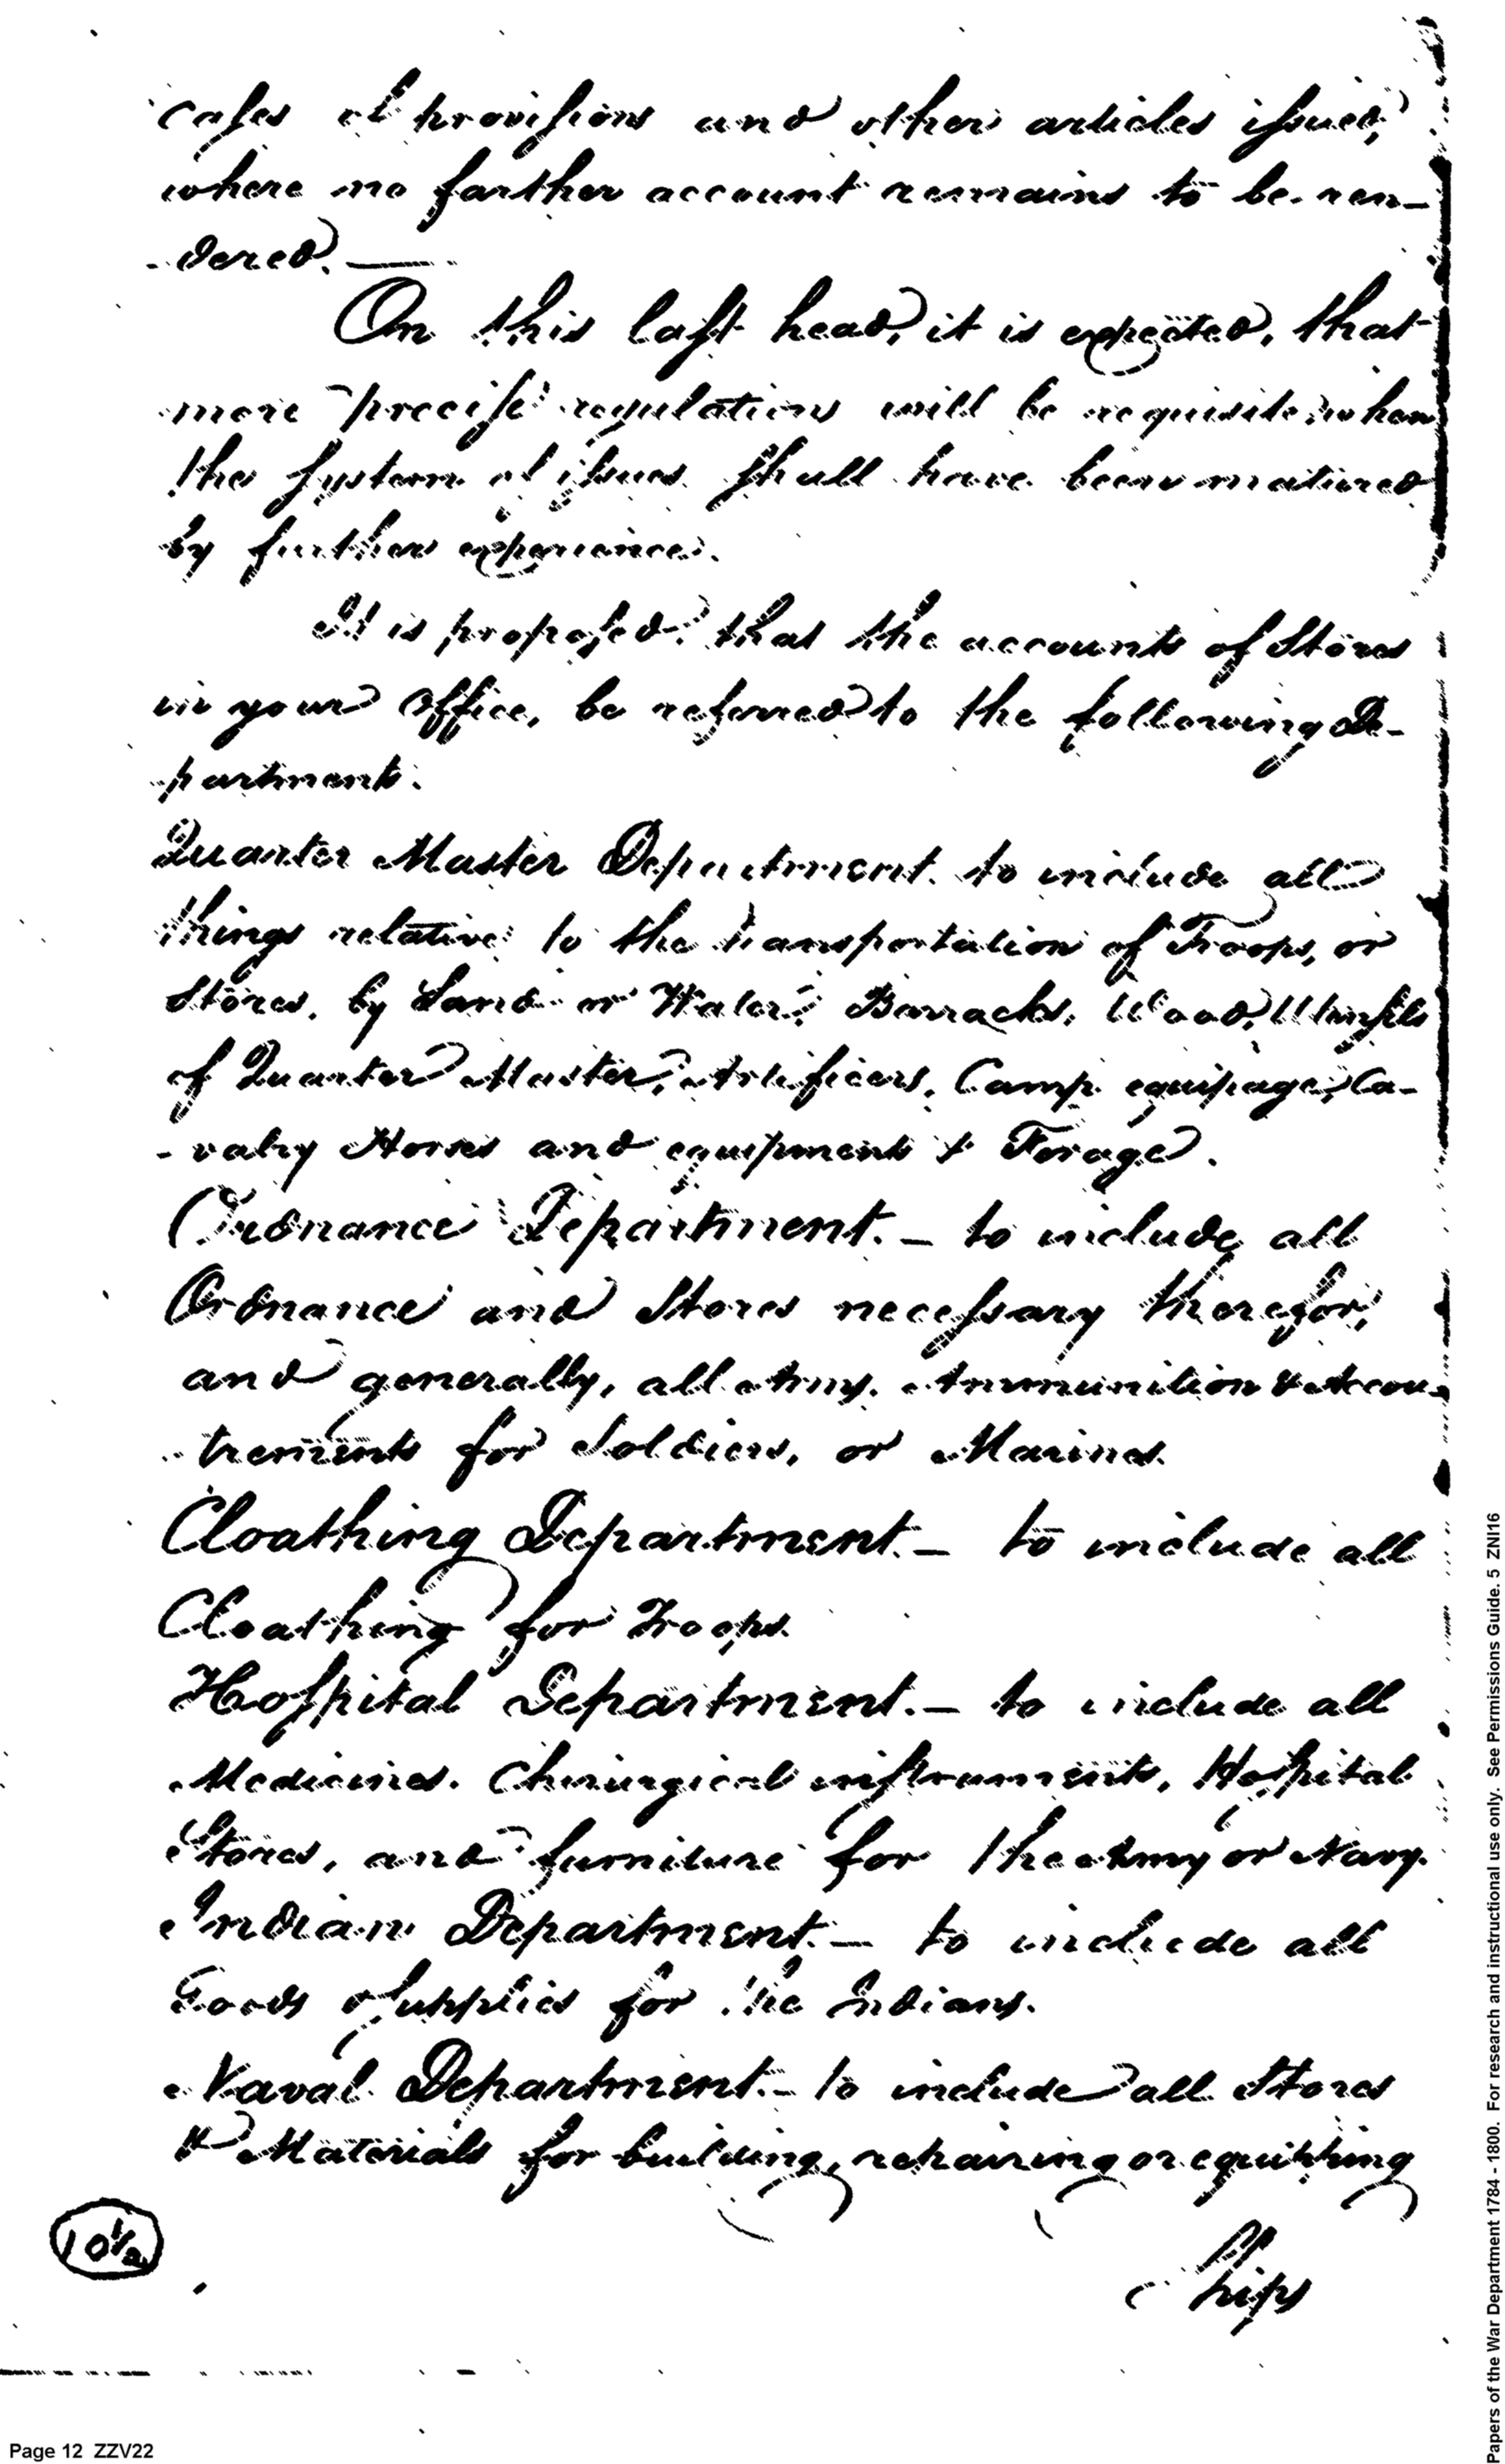 cases of provisions and other articles issued,
where no farther account remains to be ren-
-dered. —
On this last head, it is expected, that
more precise regulations will be requisite when
the system of issues shall have been matured
by further experience.
It is proposed, that the accounts of Stores
in your Office, be referred to the following De-
-partments.
Quarter Master Department. to include all
things relative to the transportation of Troops, or
Stores, by Land or Water, Barracks, Wood, Utensils
of Quarter Master, Artificers, Camp equipage, Ca-
-valry Horses and equipments & Forage.
Ordnance Department. — to include all
Ordnance and Stores necessary therefor,
and generally, all Arms. Ammunition & Accou-
-trements for Soldiers, or Marines.
Cloathing Department. — to include all
Cloathing for Troops.
Hospital Department. — to include all
Medicines. Chirurgical instruments, Hospital
Stores, and furniture for the Army or Navy.
Indian Department. — to include all
Goods & Supplies for the Indians.
Naval Department. — to include all Stores
& Materials for building, repairing or equipping
Ships
10½
Page 12 ZZV22
Papers of the War Department 1784 - 1800. For research and instructional use only. See Permissions Guide. 5 ZNI16